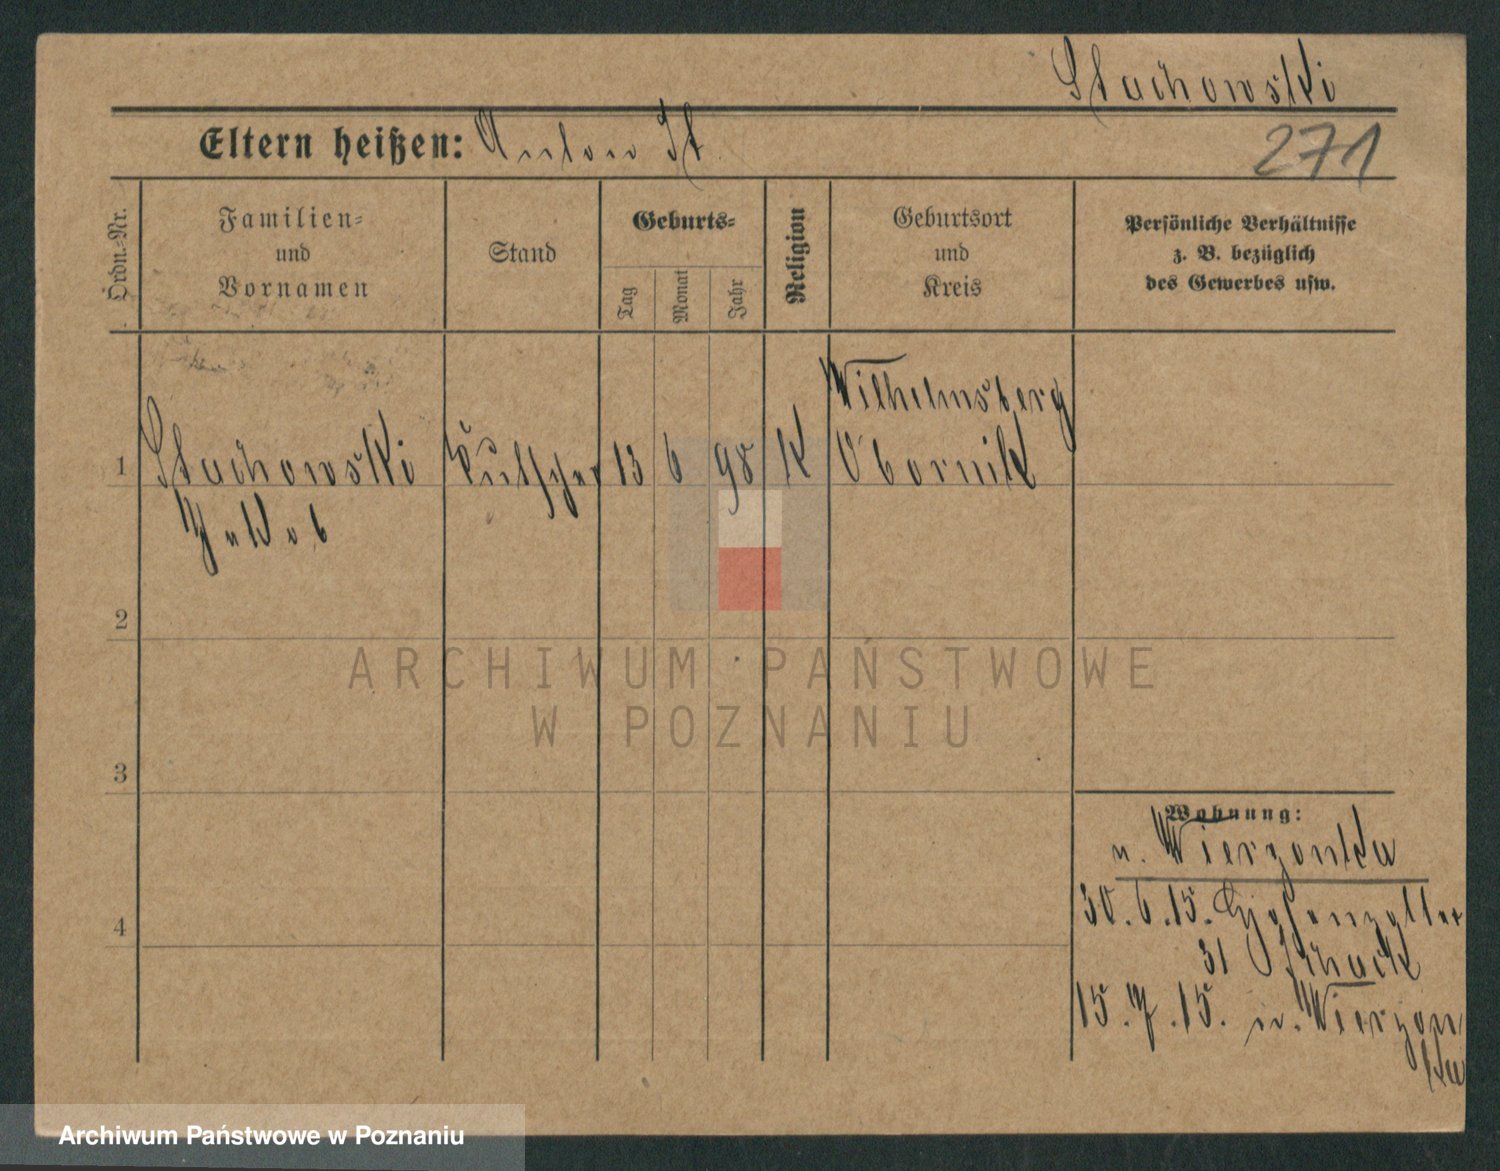 Stachowski
Eltern heißen: Anton St.
271
Ordn.-Nr.
Familien-
und
Vornamen
Stand
Geburts-
Tag
Monat
Jahr
Religion
Geburtsort
und
Kreis
Persönliche Verhältnisse
z. B. bezüglich
des Gewerbes usw.
1
Stachowski
Jakob
Kutscher
13
6
98
K
Wilhelmsberg
Obornik
2
ARCHIWUM PAŃSTWOWE
W POZNANIU
3
Wohnung:
n. Wierzonka
30. 6. 15. Hohenzoller
31 Schack
4
15. 7. 15. n. Wierzon
ka
Archiwum Państwowe w Poznaniu